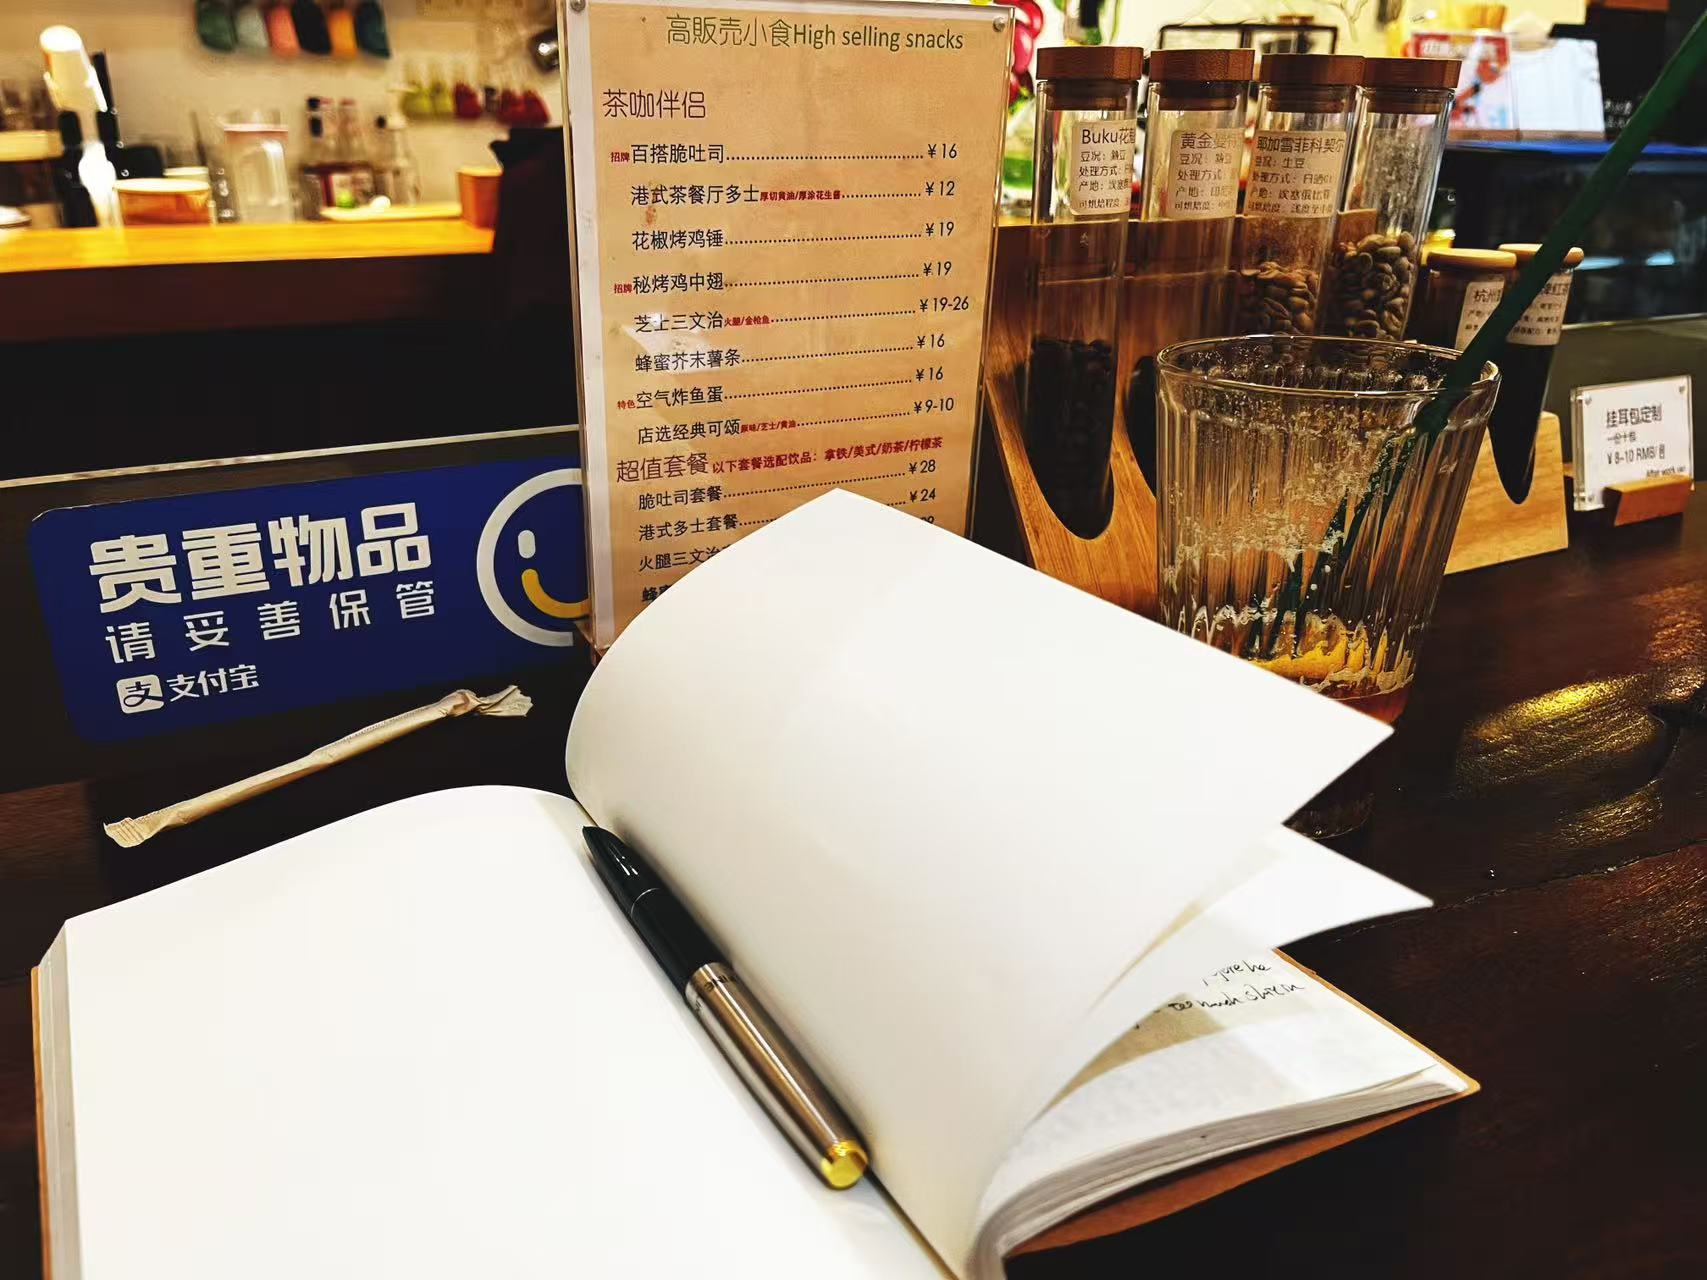 高販売小食High selling snacks
茶咖伴侣
招牌百搭脆吐司 ¥16
港式茶餐厅多士厚切黄油/厚涂花生酱 ¥12
花椒烤鸡锤 ¥19
招牌秘烤鸡中翅 ¥19
芝士三文治火腿/金枪鱼 ¥19-26
蜂蜜芥末薯条 ¥16
特色空气炸鱼蛋 ¥16
店选经典可颂原味/芝士/黄油 ¥9-10
超值套餐 以下套餐选配饮品：拿铁/美式/奶茶/柠檬茶
脆吐司套餐 ¥28
港式多士套餐 ¥24
火腿三文治
贵重物品
请妥善保管
支付宝
Buku花魁
豆况：熟豆
处理方式：日
产地：埃塞
可烘焙程度：
黄金曼特
豆况：熟豆
处理方式：
产地：印尼
可烘焙度：
耶加雪菲科契尔
豆况：生豆
处理方式：日晒
产地：埃塞俄比亚
可烘焙度：浅度至中
杭州
挂耳包定制
一份十包
¥8-10 RMB/包
After work
too much